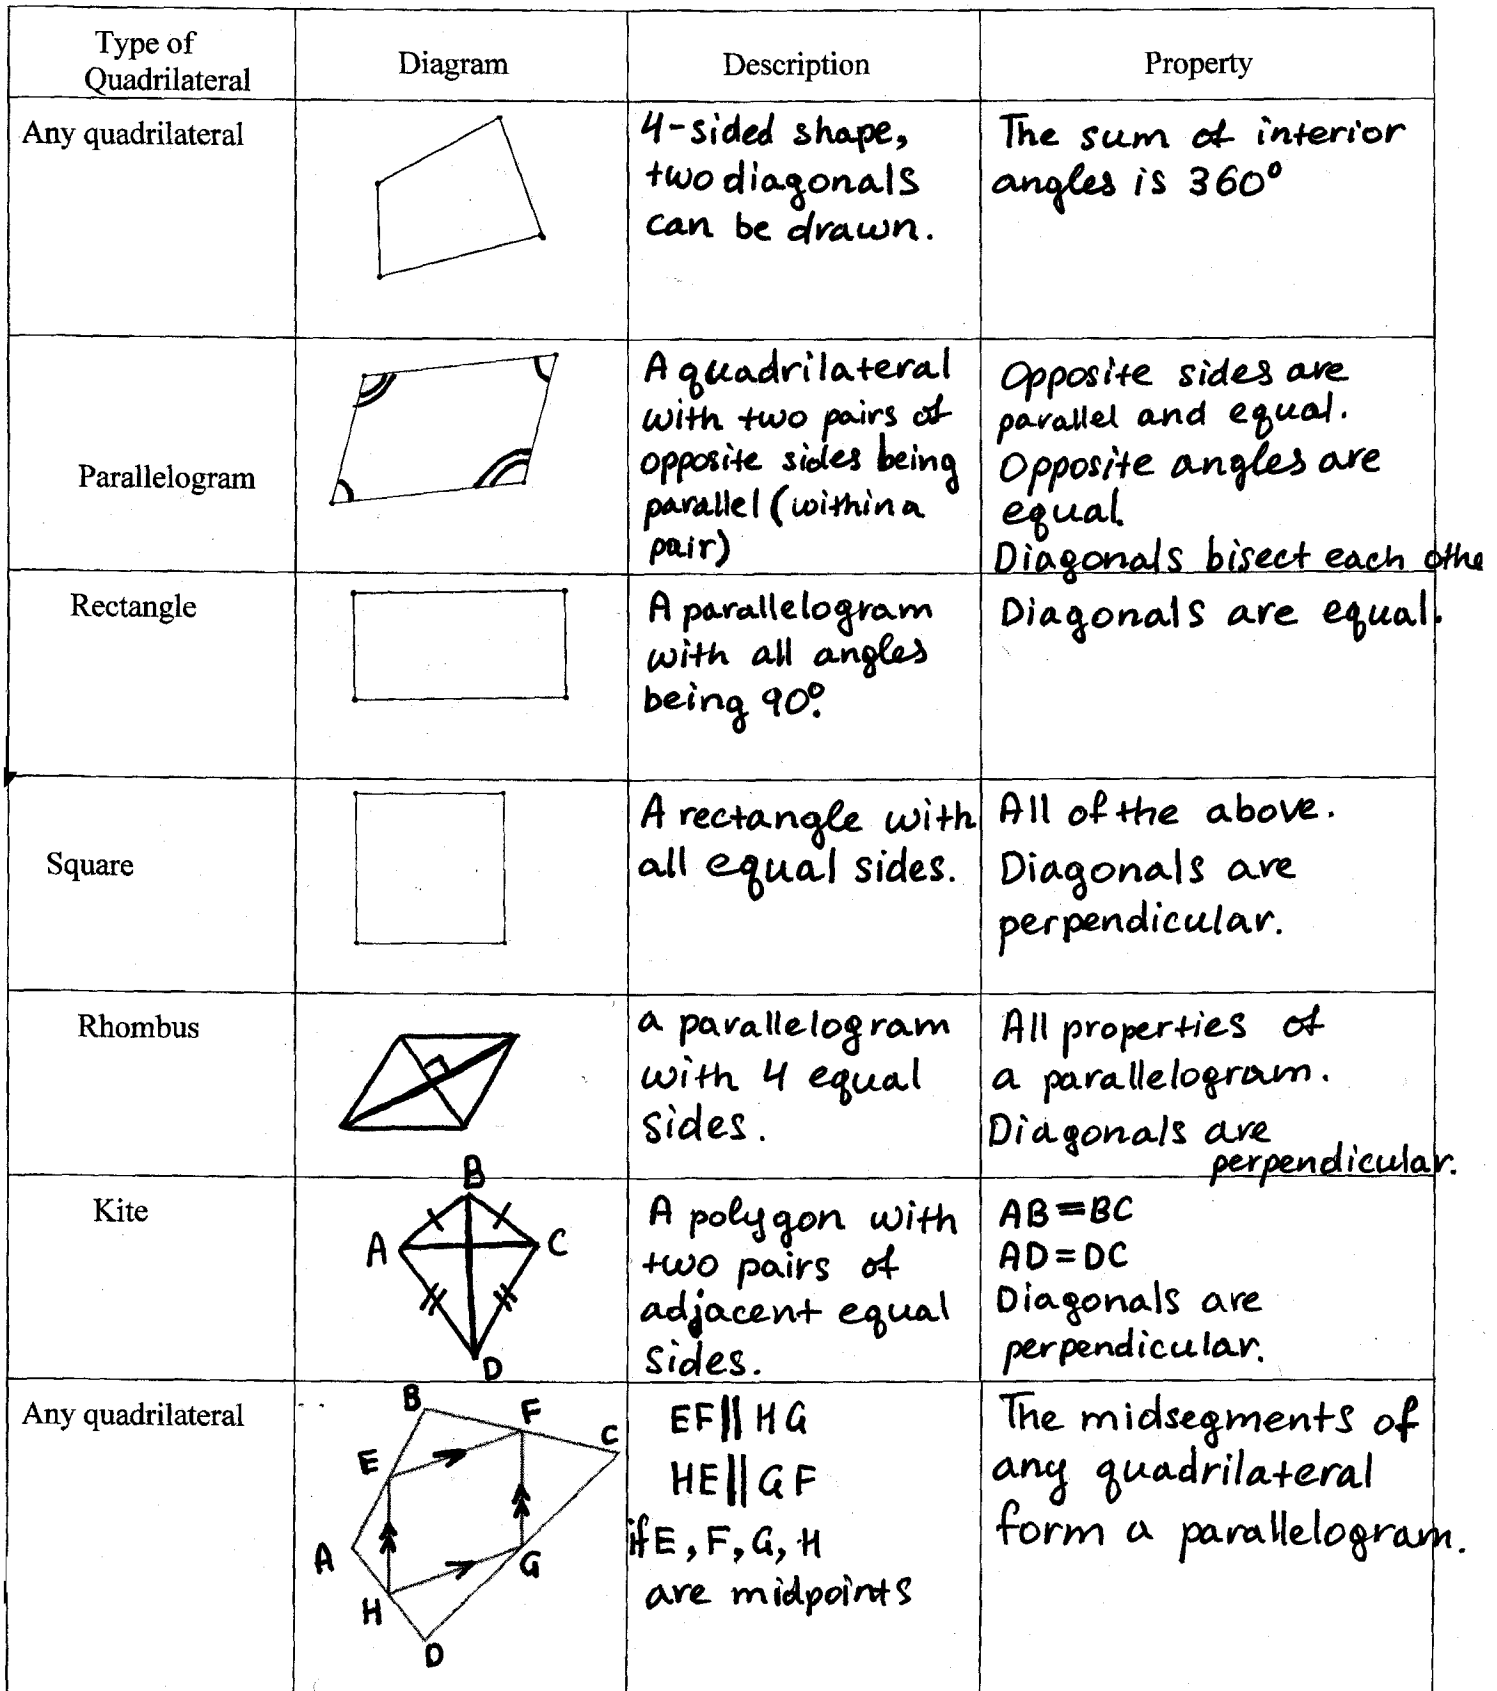 Type of
Quadrilateral
Diagram
Description
Property
Any quadrilateral
4-sided shape,
two diagonals
can be drawn.
The sum of interior
angles is 360°
Parallelogram
A quadrilateral
with two pairs of
opposite sides being
parallel (within a
pair)
Opposite sides are
parallel and equal.
Opposite angles are
equal.
Diagonals bisect each othe
Rectangle
A parallelogram
with all angles
being 90°.
Diagonals are equal.
Square
A rectangle with
all equal sides.
All of the above.
Diagonals are
perpendicular.
Rhombus
a parallelogram
with 4 equal
sides.
All properties of
a parallelogram.
Diagonals are
perpendicular.
Kite
B
A
C
D
A polygon with
two pairs of
adjacent equal
sides.
AB=BC
AD=DC
Diagonals are
perpendicular.
Any quadrilateral
B
F
C
E
A
G
H
D
EF||HG
HE||GF
if E, F, G, H
are midpoints
The midsegments of
any quadrilateral
form a parallelogram.